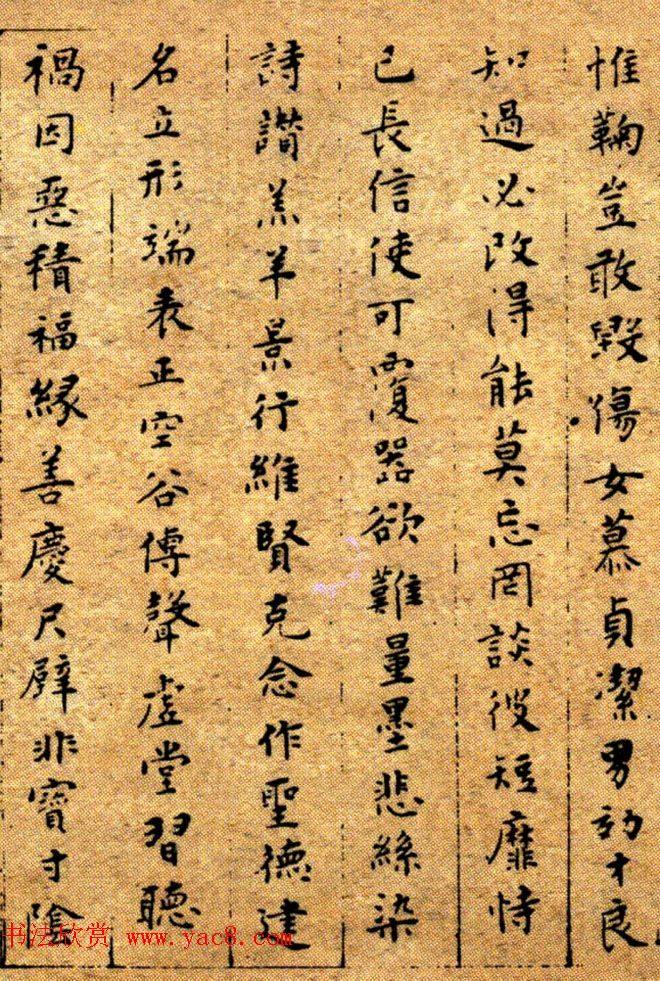 惟鞠豈敢毀傷女慕貞潔男効才良
知過必改得能莫忘罔談彼短靡恃
己長信使可覆器欲難量墨悲絲染
詩讃羔羊景行維賢克念作聖德建
名立形端表正空谷傳聲虛堂習聽
禍因惡積福緣善慶尺璧非寶寸陰
书法欣赏 www.yac8.com